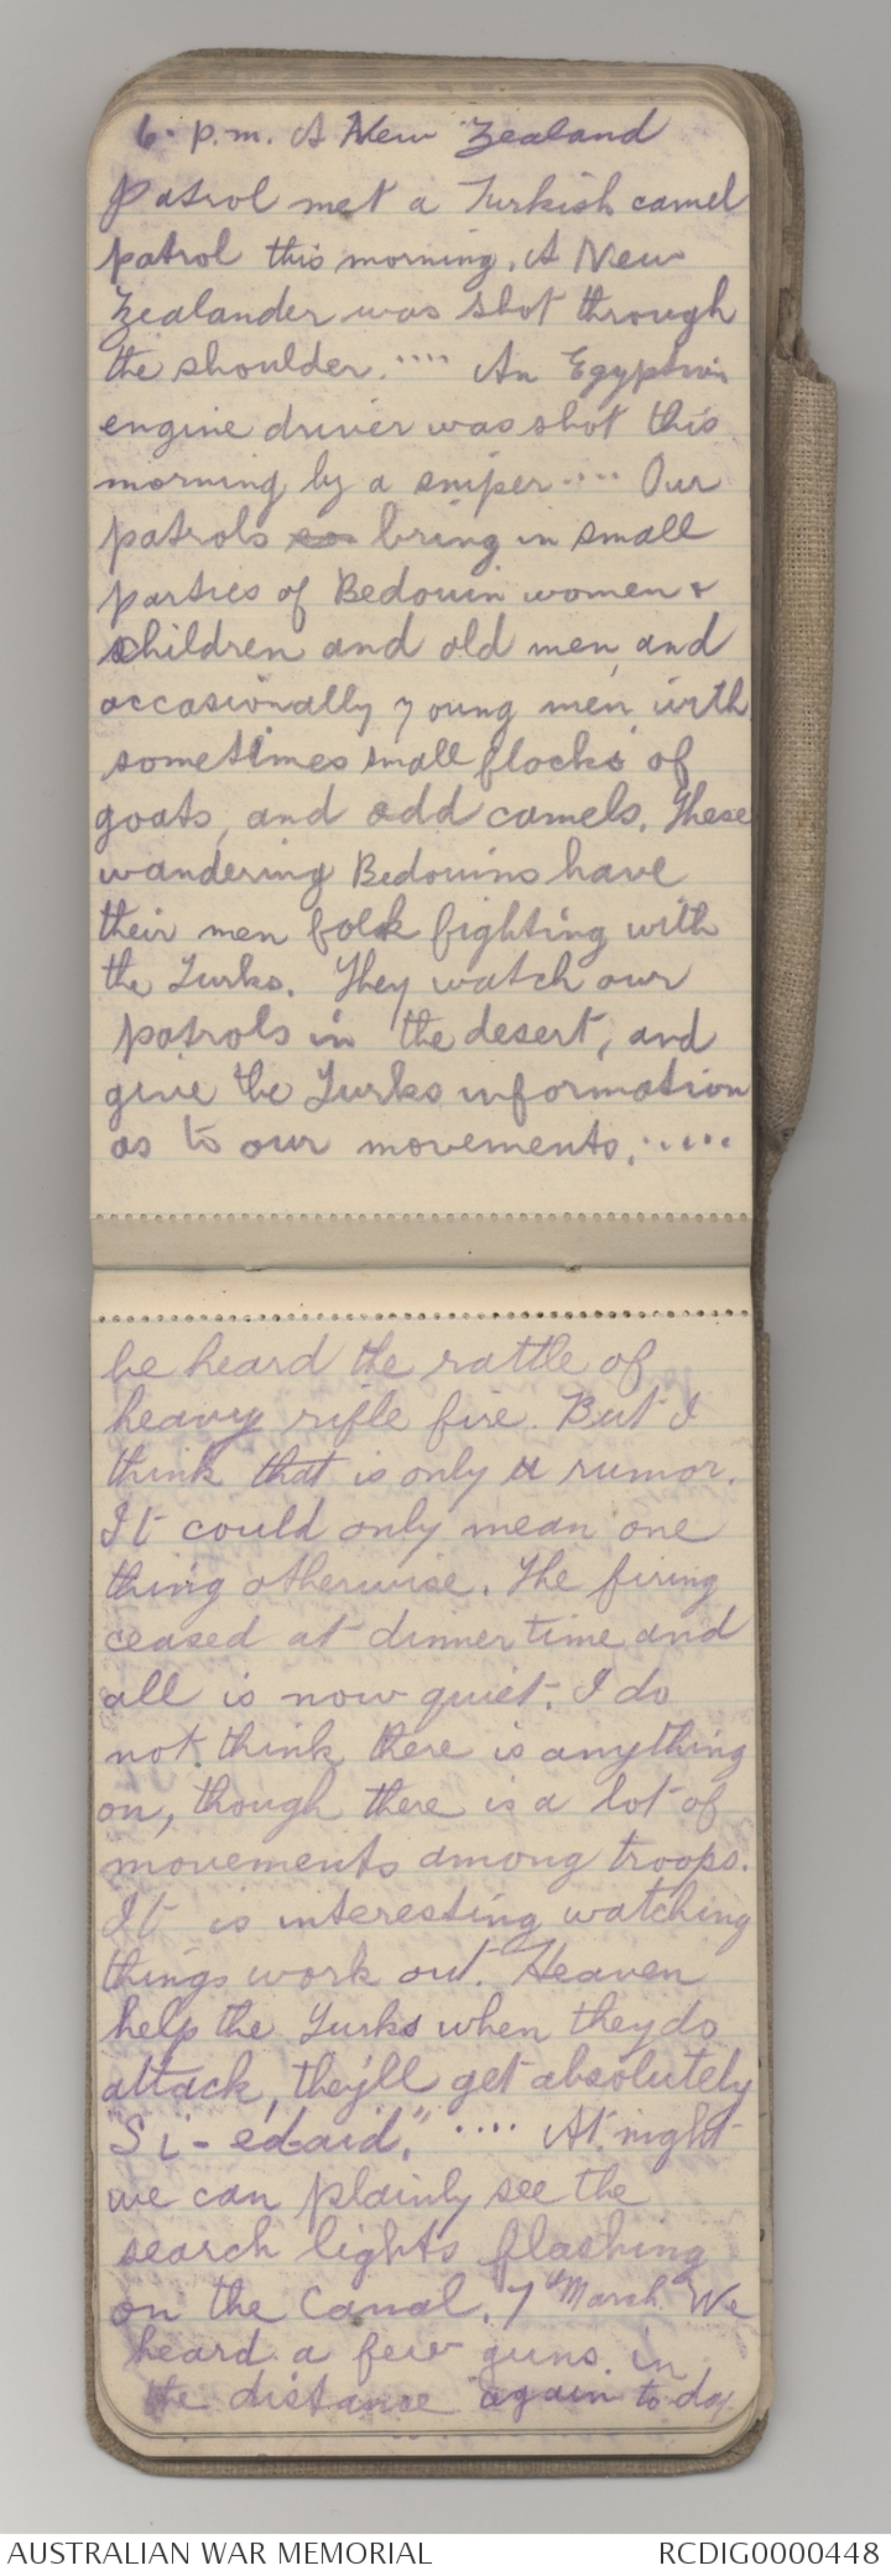 6. p.m. A New Zealand
patrol met a Turkish camel
patrol this morning. A New
Zealander was shot through
the shoulder.'''' An Egyptian
engine driver was shot this
morning by a sniper .... Our
patrols bring in small
parties of Bedouin women &
children and old men, and
occasionally young men, with
sometimes small flocks of
goats, and odd camels. These
wandering Bedouins have
their men folk fighting with
the Turks. They watch our
patrols in the desert, and
give the Turks information
as to our movements.....
be heard the rattle of
heavy rifle fire. But I
think that is only a rumor.
It could only mean one
thing otherwise. The firing
ceased at dinner time and
all is now quiet. I do
not think there is anything
on, though there is a lot of
movements among troops.
It is interesting watching
things work out. Heaven
help the Turks when they do
attack, they'll get absolutely
"Si-edaid." .... At night
we can plainly see the
search lights flashing
on the Canal. 7th March. We
heard a few guns in
the distance again to-day
AUSTRALIAN WAR MEMORIAL RCDIG0000448